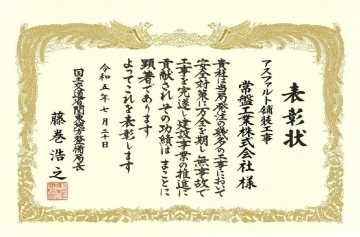 表彰状
アスファルト舗装工事
常盤工業株式会社 様
貴社は当局発注の幾多の工事において
安全対策に万全を期し無事故で
工事を完遂し建設事業の推進に
貢献されその功績はまことに
顕著であります
よってこれを表彰します
令和五年七月二十日
国土交通省関東地方整備局長
藤巻浩之